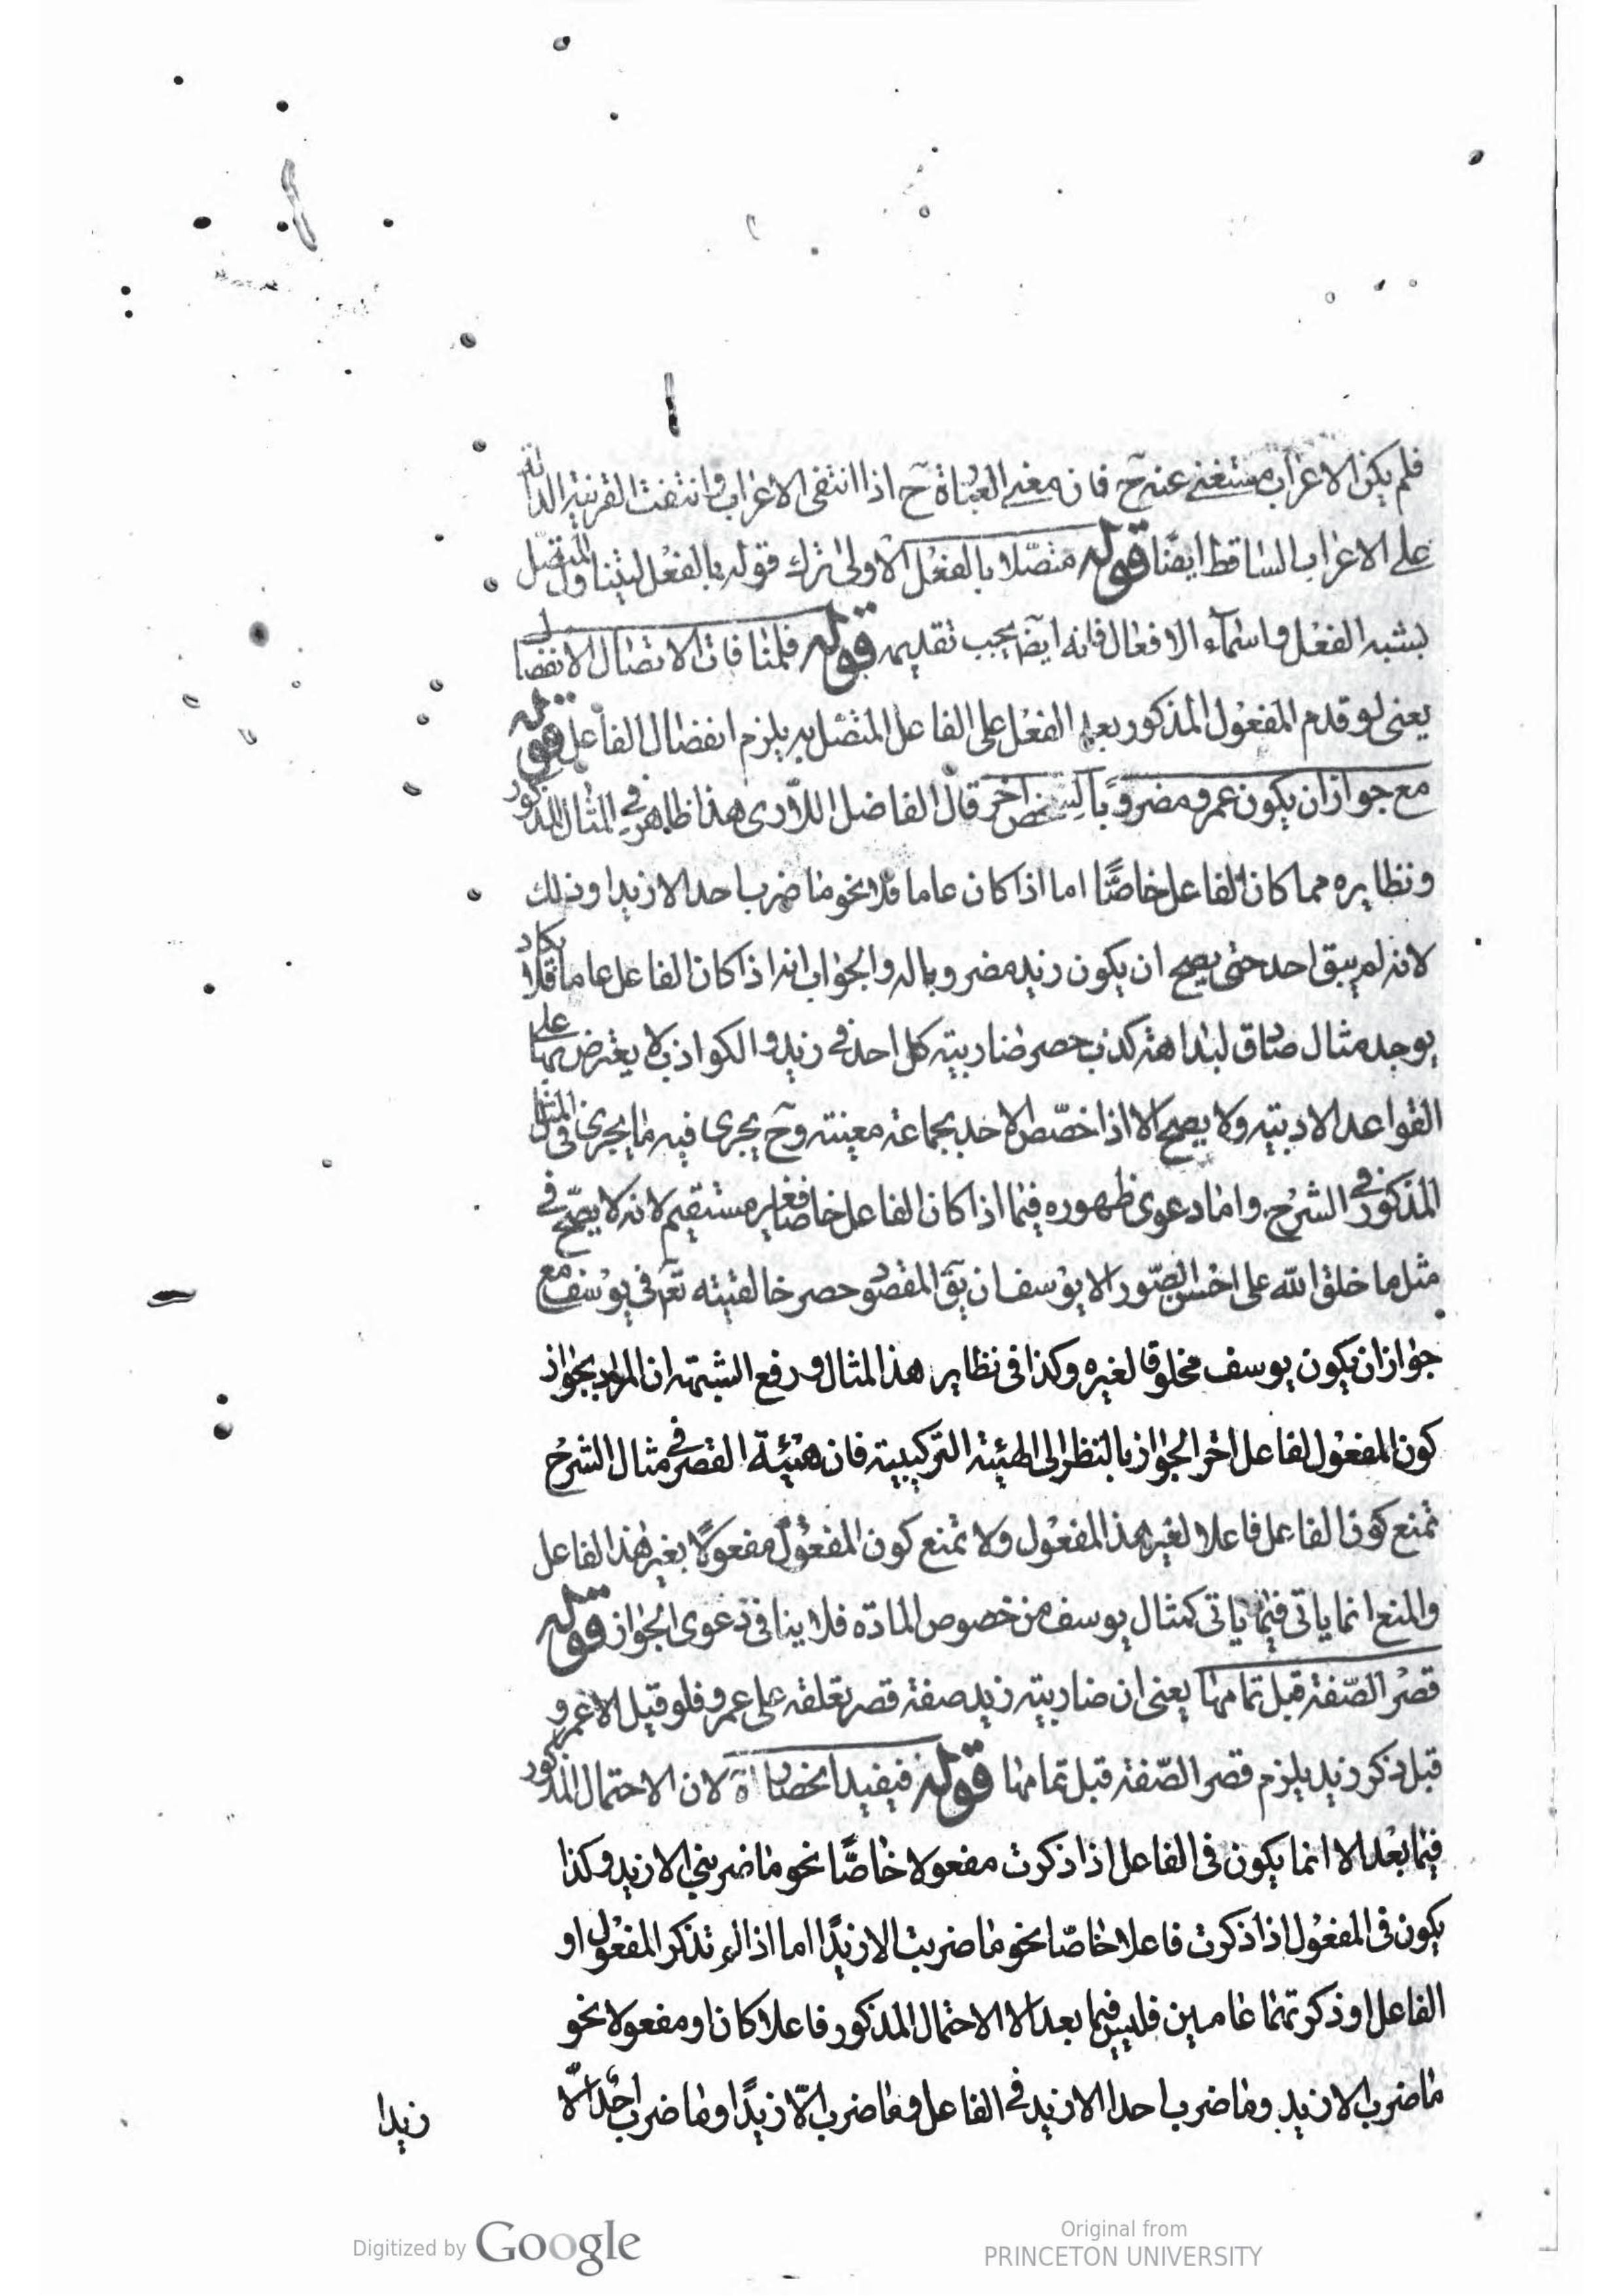 فلم يكن الاعراب مستغنى عنه ح فان معنى العبارة ح اذا انتفى الاعراب وانتفت القرنية الدالة
على الاعراب الساقط ايضا قوله متصلا بالفعل الاولى ترك قوله بالفعل ليتناول المتصل
بشبه الفعل واسماء الافعال فانه ايضا يجب تقديمه قوله فلمنافات الاتصال الانفصال
يعنى لو قدم المفعول المذكور بعد الفعل على الفاعل المتصل به يلزم انفصال الفاعل قوله
مع جواز ان يكون عمرو مضروبا لشخص اخر قال الفاضل اللارى هذا ظاهر فى المثال المذكور
ونظايره مما كان الفاعل خاصا اما اذا كان عاما فلا نحو ما ضرب احد الا زيدا وذلك
لانه لم يبق احد حتى يصح ان يكون زيد مضروبا له والجواب انه اذا كان الفاعل عاما فلا يكاد
يوجد مثال صادق لبداهة كذب حصر ضاربية كل احد فى زيد والكواذب لا يعترض بها على
القواعد الادبية ولا يصح الا اذا خصص الاحد بجماعة معينة وح يجرى فيه ما يجرى فى المثل
المذكور فى الشرح واما دعوى ظهوره فيما اذا كان الفاعل خاصا فغير مستقيم لانه لا يصح فى
مثل ما خلق الله على احسن الصور الا يوسف ان يق المقصود حصر خالقيته تع فى يوسف مع
جواز ان يكون يوسف مخلوقا لغيره وكذا فى نظاير هذا المثال ورفع الشبهة ان المراد بجواز
كون المفعول لفاعل اخر الجواز بالنظر الى الهيئة التركيبية فان هيئة القصر فى مثال الشرح
تمنع كون الفاعل فاعلا لغير هذا المفعول ولا تمنع كون المفعول مفعولا بغير هذا الفاعل
والمنع انما ياتى فيما ياتى كمثال يوسف من خصوص المادة فلا ينافى دعوى الجواز قوله
قصر الصفة قبل تمامها يعنى ان ضاربية زيد صفة قصر تعلقه على عمرو فلو قيل الا عمرو
قبل ذكر زيد يلزم قصر الصفة قبل تمامها قوله فيفيد انحصار اة لان الاحتمال المذكور
فيما بعد الا انما يكون فى الفاعل اذا ذكرت مفعولا خاصا نحو ما ضربنى الا زيد وكذا
يكون فى المفعول اذا ذكرت فاعلا خاصا نحو ما ضربت الا زيدا اما اذا لم تذكر المفعول او
الفاعل او ذكرتهما عامين فليس فيما بعد الا الاحتمال المذكور فاعلا كان او مفعولا نحو
ما ضرب الا زيد وما ضرب احدا الا زيد فى الفاعل وما ضرب الا زيدا وما ضرب احد الا
زيدا
Digitized by Google
Original from
PRINCETON UNIVERSITY